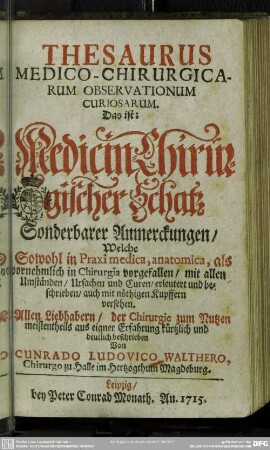 THESAURUS
MEDICO-CHIRURGICA-
RUM OBSERVATIONUM
CURIOSARUM.
Das ist:
Medicin-Chirur-
gischer Schatz
Sonderbarer Anmerckungen/
Welche
Sowohl in Praxi medica, anatomica, als
vornehmlich in Chirurgia vorgefallen/ mit allen
Umständen/ Ursachen und Curen/ erleutert und be-
schrieben/ auch mit nöthigen Kupffern
versehen.
Allen Liebhabern/ der Chirurgie zum Nutzen
meistentheils aus eigner Erfahrung kürtzlich und
deutlich beschrieben
Von
CUNRADO LUDOVICO WALTHERO,
Chirurgo zu Halle im Hertzogthum Magdeburg.
Leipzig/
bey Peter Conrad Monath. An. 1715.
DFG